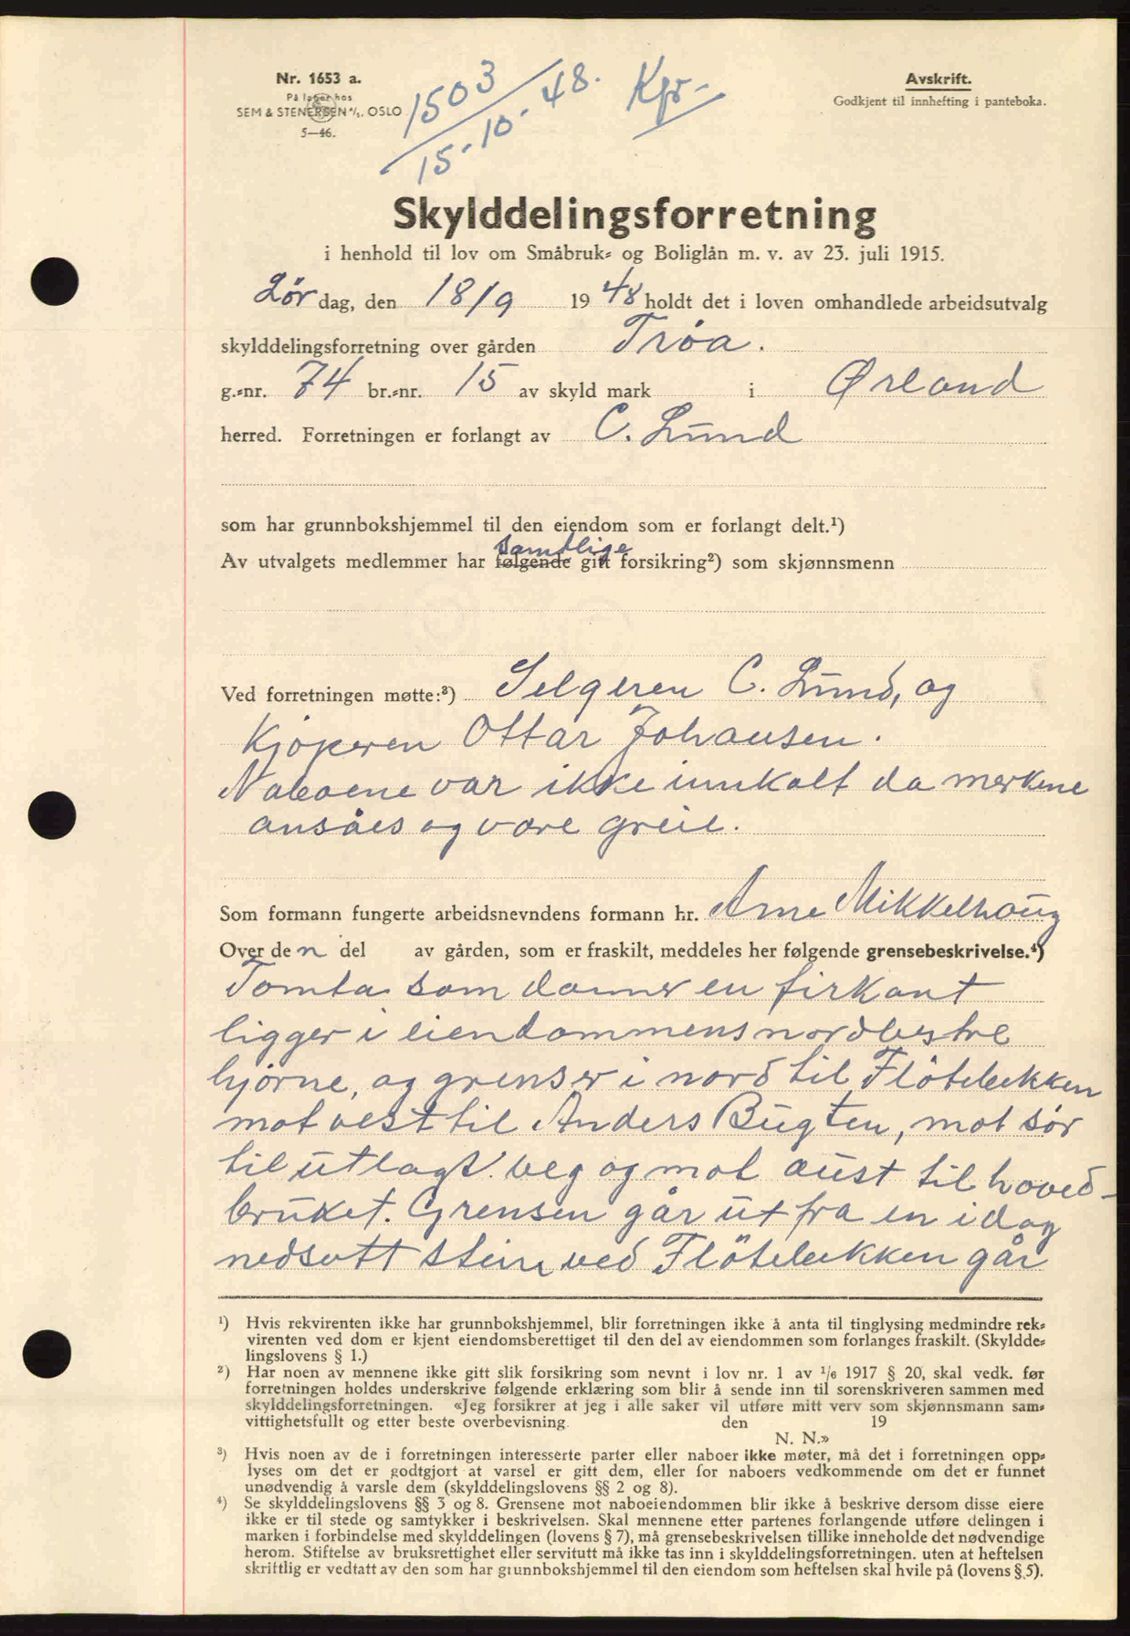 Nr. 1653 a.
På lager hos
SEM & STENERSEN A/S, OSLO
5—46.
1503
15-10-48. Kfr.
Avskrift.
Godkjent til innhefting i panteboka.
Skylddelingsforretning
i henhold til lov om Småbruk- og Boliglån m. v. av 23. juli 1915.
Lördag, den 18/9 1948 holdt det i loven omhandlede arbeidsutvalg
skylddelingsforretning over gården Trøa.
g.-nr. 74 br.-nr. 15 av skyld mark i Ørland
herred. Forretningen er forlangt av C. Lund
som har grunnbokshjemmel til den eiendom som er forlangt delt.¹)
samtlige
Av utvalgets medlemmer har følgende gitt forsikring²) som skjønnsmenn
Ved forretningen møtte:³) Selgeren C. Lund, og
Kjöperen Ottar Johansen.
Naboene var ikke innkalt da merkene
ansåes og være greie.
Som formann fungerte arbeidsnevndens formann hr. Arne Mikkelhaug
Over den del av gården, som er fraskilt, meddeles her følgende grensebeskrivelse.⁴)
Tomta som danner en firkant
ligger i eiendommens nordvestre
hjörne, og grenser i nord til Flötebekken
mot vest til Anders Bugten, mot sör
til utlagt veg og mot aust til hoved-
bruket. Grensen går ut fra en idag
nedsatt stein ved Flötebekken går
¹) Hvis rekvirenten ikke har grunnbokshjemmel, blir forretningen ikke å anta til tinglysing medmindre rek-
virenten ved dom er kjent eiendomsberettiget til den del av eiendommen som forlanges fraskilt. (Skyldde-
lingslovens § 1.)
²) Har noen av mennene ikke gitt slik forsikring som nevnt i lov nr. 1 av 1/6 1917 § 20, skal vedk. før
forretningen holdes underskrive følgende erklæring som blir å sende inn til sorenskriveren sammen med
skylddelingsforretningen. «Jeg forsikrer at jeg i alle saker vil utføre mitt verv som skjønnsmann sam-
vittighetsfullt og etter beste overbevisning. den 19
N. N.»
³) Hvis noen av de i forretningen interesserte parter eller naboer ikke møter, må det i forretningen opp-
lyses om det er godtgjort at varsel er gitt dem, eller for naboers vedkommende om det er funnet
unødvendig å varsle dem (skylddelingslovens §§ 2 og 8).
⁴) Se skylddelingslovens §§ 3 og 8. Grensene mot naboeiendommen blir ikke å beskrive dersom disse eiere
ikke er til stede og samtykker i beskrivelsen. Skal mennene etter partenes forlangende utføre delingen i
marken i forbindelse med skylddelingen (lovens § 7), må grensebeskrivelsen tillike inneholde det nødvendige
herom. Stiftelse av bruksrettighet eller servitutt må ikke tas inn i skylddelingsforretningen, uten at heftelsen
skriftlig er vedtatt av den som har grunnbokshjemmel til den eiendom som heftelsen skal hvile på (lovens § 5).